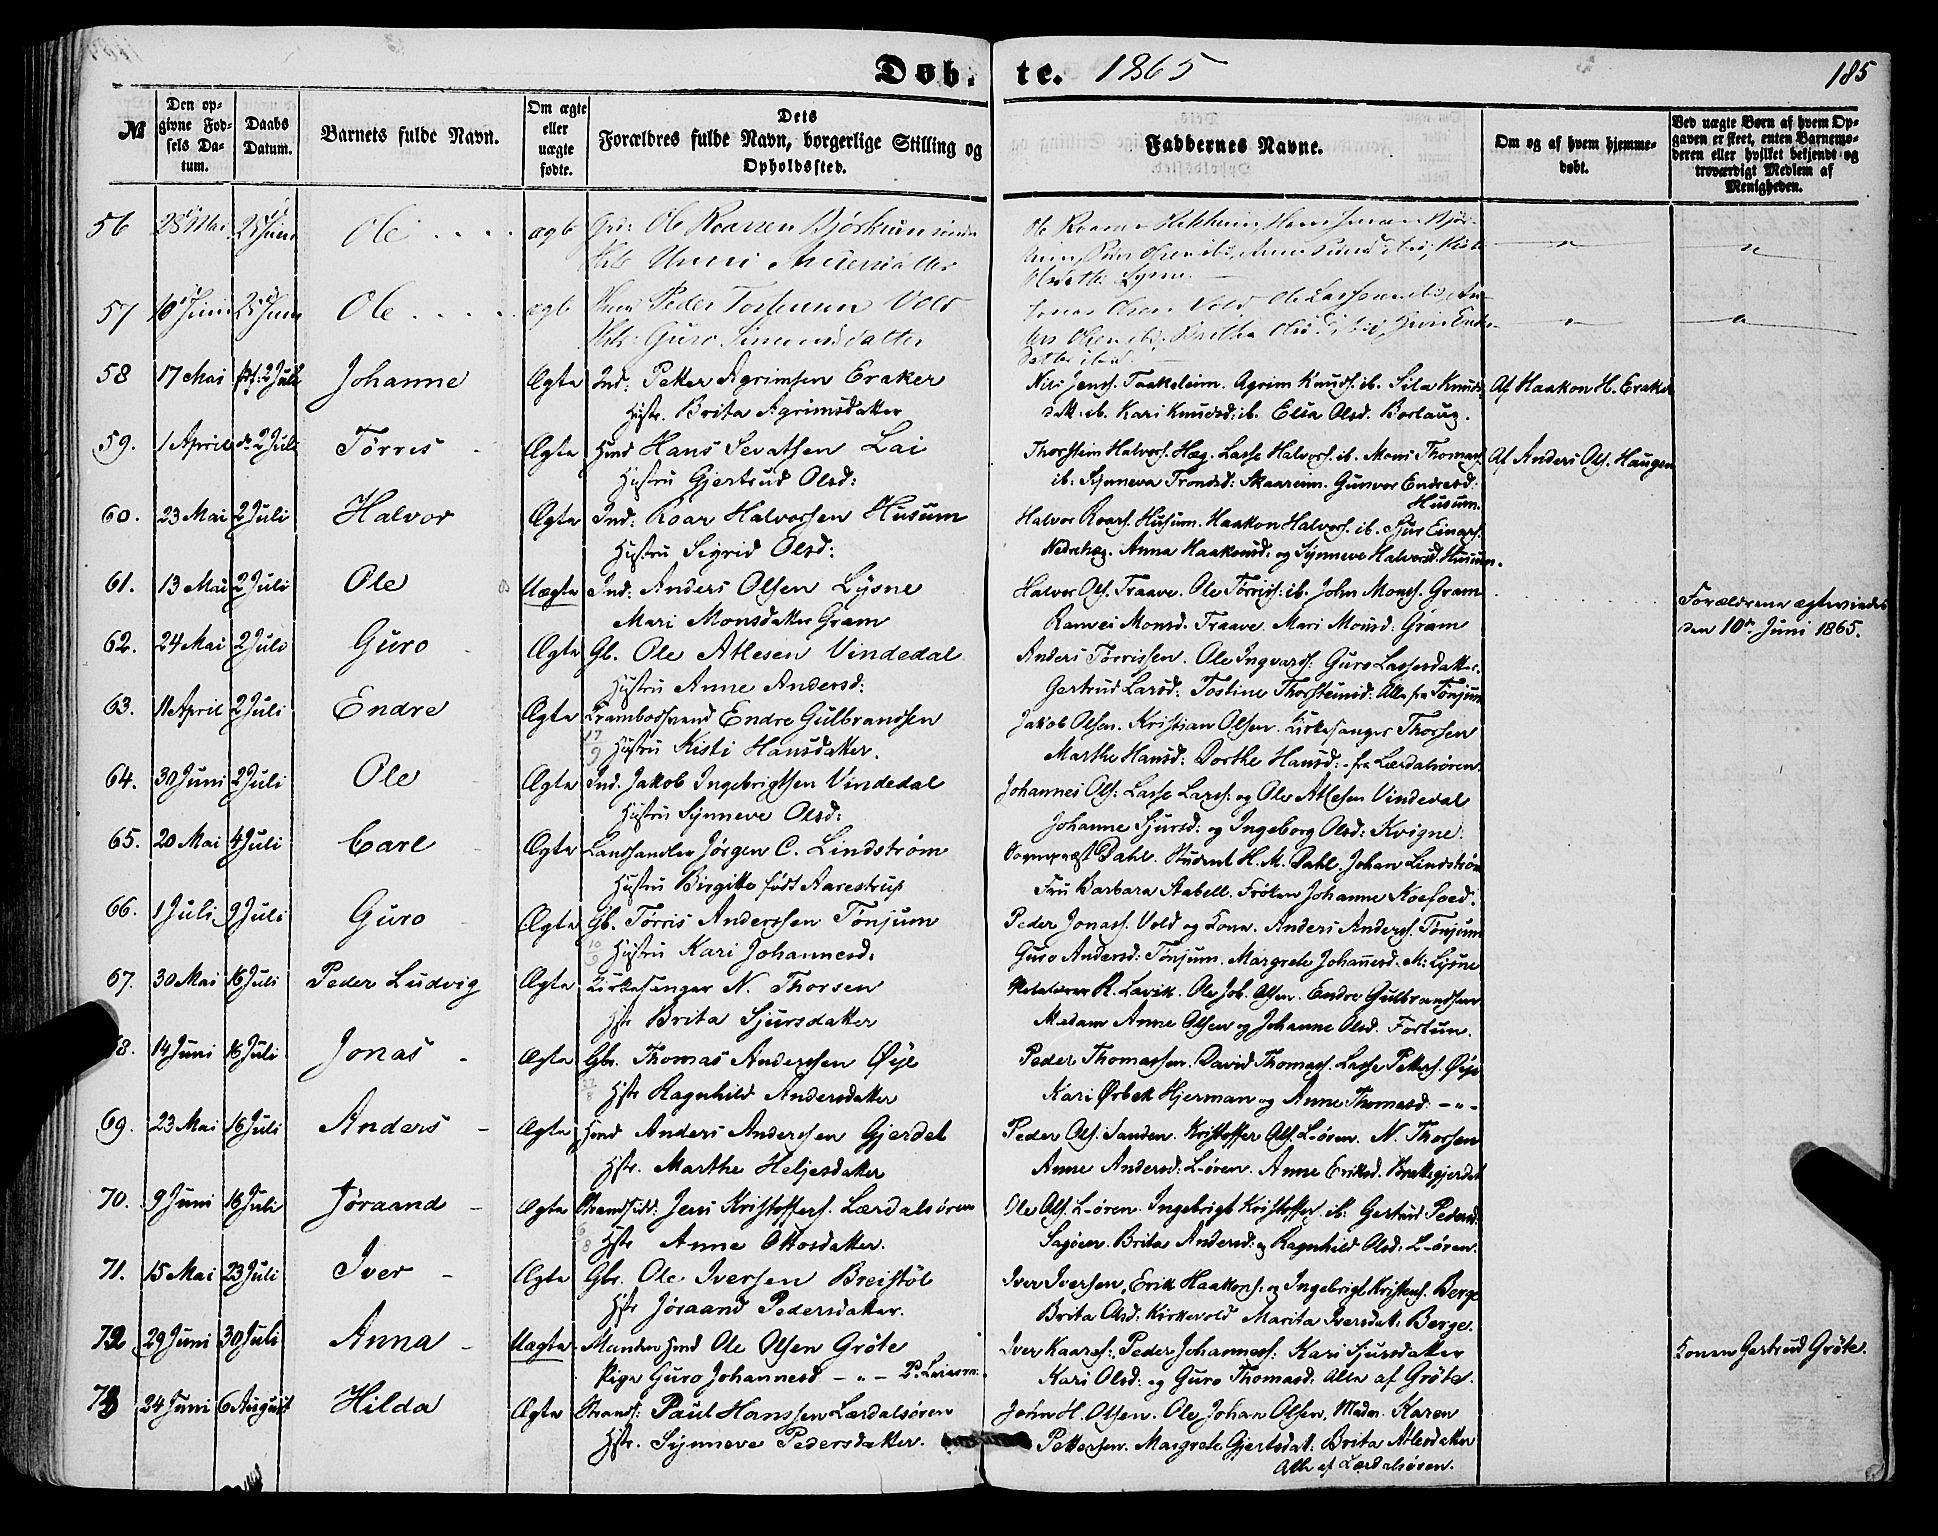 Døb. te. 1865
185
№
Den op-
givne Fød-
sels Da-
tum.
Daabs
Datum.
Barnets fulde Navn.
Om ægte
eller
uægte
fødte.
Dets
Forældres fulde Navn, borgerlige Stilling og
Opholdssted.
Faddernes Navne.
Om og af hvem hjemme-
døbt.
Ved uægte Børn af hvem Op-
gaven er skeet, enten Barnemo-
deren eller hvilket bekjendt og
troværdigt Medlem af
Menigheden.
56 28 Mai 25 Juni Ole ægte Ole Roarsen Bjørkum
Unni
57 10 Juni 25 Juni Ole ægte Peder Vold
Guro Simensdatter
58 17 Mai 2 Juli Johanne Ægte Ind. Petter Agrimsen Eraker
Hstr. Brita Agrimsdatter
Nils Jenss. Taakeleim. Agrim Knuds. ib. Sila Knuds-
datt. ib. Kari Knudsd: ib. Elia Olsd. Borlaug.
Af Haakon H. Eraker
59. 1 April 2 Juli Tørris Ægte Hmd Hans Sevatsen Lai
Hustru Gjertrud Olsd:
Thorstein Halvors. Hæg. Lasse Halvors. ib. Mons Thomass.
ib. Synneva Trondsd: Skaarum. Gunvor Endresd:
Husum.
Af Anders Ols. Haugen
60. 23 Mai 2 Juli Halvor Ægte Ind: Roar Halvorsen Husum
Hustru Sigrid Olsd:
Halvor Roars. Husum. Haakon Halvors. ib. Sjur Einars.
Nedrehæg. Anna Haakensd: og Synneve Halvorsd. Husum.
61. 13 Mai 2 Juli Ole Uægte Ind: Anders Olsen Lysne
Mari Monsdatter Gram
Halvor Ols. Traave. Ole Tørriss: ib. John Monss. Gram
Ranvei Monsd. Traave. Mari Monsd: Gram
Forældrene ægteviede
den 10de Juni 1865.
62. 24 Mai 2 Juli Guro Ægte Gb. Ole Atlesen Vindedal
Hustru Anne Andersd:
Anders Tørrissen. Ole Ingvards: Guro Lassesdatter.
Gertrud Larsd: Tostine Thorsteinsd: Alle fra Tønjum
63. 11 April 2 Juli Endre Ægte Krambodsvend Endre Gulbrandsen
17/9 Hustru Kisti Hansdatter.
Jakob Olsen. Kristian Olsen. Kirkesanger Thorsen
Marthe Hansd: Dorthe Hansd: fra Lærdalsøren.
64. 30 Juni 2 Juli Ole Ægte Ind. Jakob Ingebrigtsen Vindedal
Hustru Synneve Olsd:
Johannes Ols: Lasse Larss: og Ole Atlesen Vindedal
Johanne Sjursd: og Ingeborg Olsd: Kvigne.
65. 20 Mai 4 Juli Carl Ægte Landhandler Jørgen C. Lindstrøm
Hustru Birgitte født Aarestrup
Sognepræst Dahl. Student H. M. Dahl. Johan Lindstrøm
Fru Barbara Stabell. Frøken Johanne Koefoed.
66. 1 Juli 9 Juli Guro Ægte Gb. Tørris Anderssen Tønjum
10/9 Hustru Kari Johannesd.
Peder Jonass. Vold og Kone. Anders Anderss. Tønjum
Guro Andersd: Tønjum. Margrete Johannesd. M: Lysne
67. 30 Mai 16 Juli Peder Ludvig Ægte Kirkesanger N. Thorsen
Hstr Brita Sjursdatter
R. Lavik. Ole Joh. Olsen. Endre Gulbrandsen
Madam Anne Olsen og Johanne Olsd. Fortun.
68. 14 Juni 16 Juli Jonas Ægte Gbr. Thomas Anderssen Øye
27/8 Hstr Ragnhild Andersdatter
Peder Thomassen. David Thomass. Lasse Petters. Øye
Kari Ørbek Hjerman og Anne Thomasd. -„-
69. 23 Mai 16 Juli Anders Ægte Hmd Anders Anderssen Gjerdet
Hstr. Marthe Heljesdatter
Peder Ols: Sanden. Kristoffer Ols. L-øren. N. Thorsen
Anne Andersd: L-øren. Anne Eriksd. Brattegjerdet
70. 9 Juni 16 Juli Jøraand Ægte Strandsidd: Jens Kristoffers. Lærdalsøren
6/8 Hstr Anne Ottosdatter.
Ole Ols. L-øren. Ingebrigt Kristoffers. ib. Gertrud Pedersd.
Sagøen. Brita Andersd: og Ragnhild Olsd. L-øren.
71. 15 Mai 23 Juli Iver Ægte Gbr. Ole Iversen Breistøl
Hstr Jøraand Pedersdatter.
Iver Iversen, Erik Haakons: og Ingebrigt Kristens. Berge
Brita Olsd: Kirkevold Marita Iversdat: Berge.
72 29 Juni 30 Juli Anna Uægte Ole Olsen Grøte
Pige Guro Johannesd -„-
Iver Kaars: Peder Johanness: Kari Sjursdatter
Kari Olsd: og Guro Thomasd: Alle af Grøte.
Konen Gertrud Grøte.
73 24 Juni 6 August Hilda Ægte Strands: Paul Hanssen Lærdalsøren
Hstr. Synneve Pedersdatter.
John H. Olsen. Ole Johan Olsen, Madm. Karen
Pettersen. Margrete Gjertsdat: Brita Atlesdatter
Alle af Lærdalsøren.